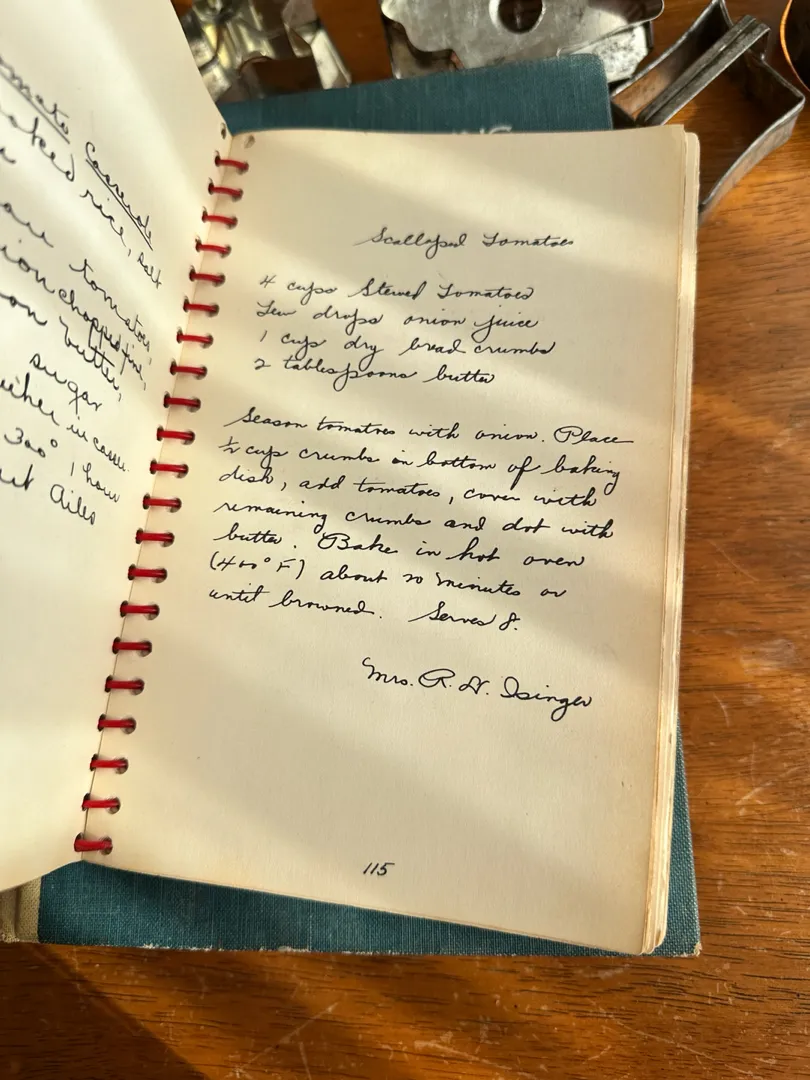 omato Casserole
oaked rice, salt
are tomatoes,
ion chopped fine,
on butter,
sugar
either in cass.
300° 1 hour
Ailes
Scalloped Tomatoes
4 cups Stewed Tomatoes
Few drops onion juice
1 cup dry bread crumbs
2 tablespoons butter
Season tomatoes with onion. Place
½ cup crumbs in bottom of baking
dish, add tomatoes, cover with
remaining crumbs and dot with
butter. Bake in hot oven
(400° F) about 20 minutes or
until browned. Serves 8.
Mrs. R. W. Isinger
115